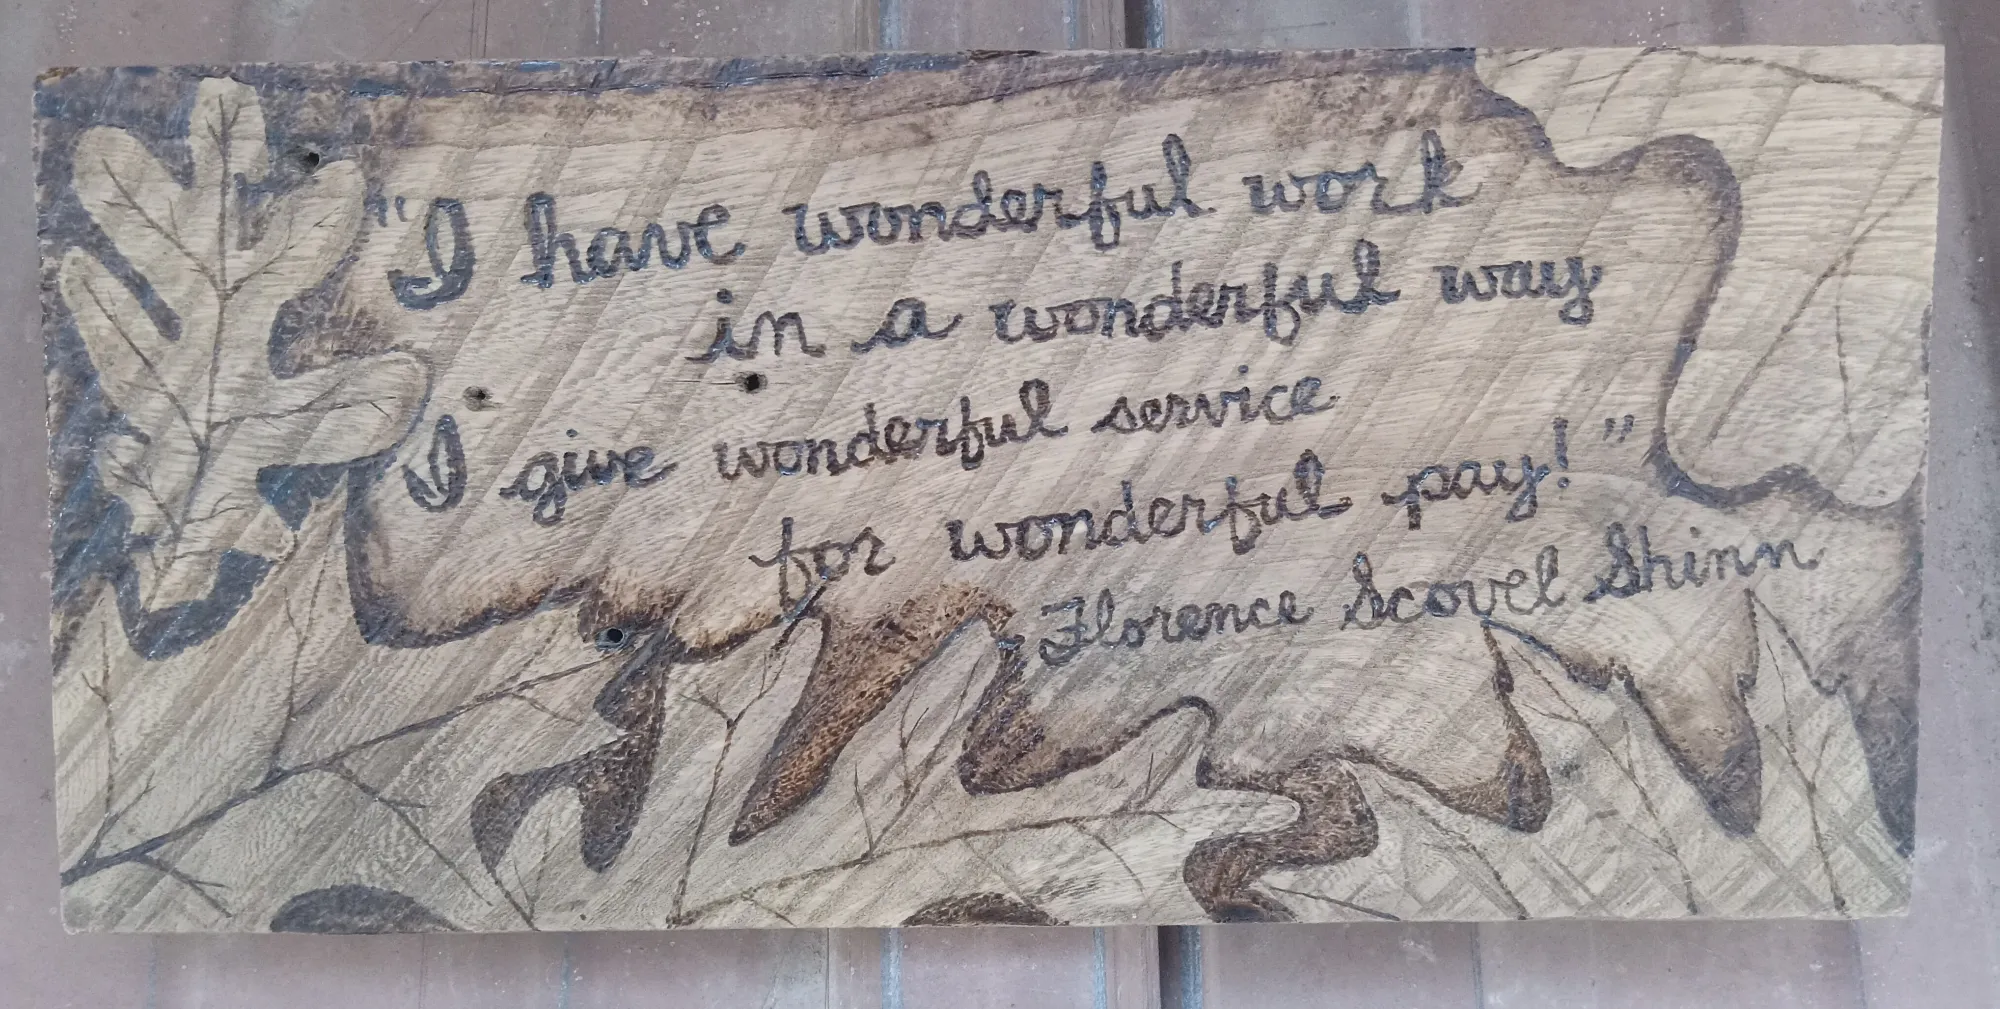 "I have wonderful work
in a wonderful way
I give wonderful service
for wonderful pay!"
Florence Scovel Shinn